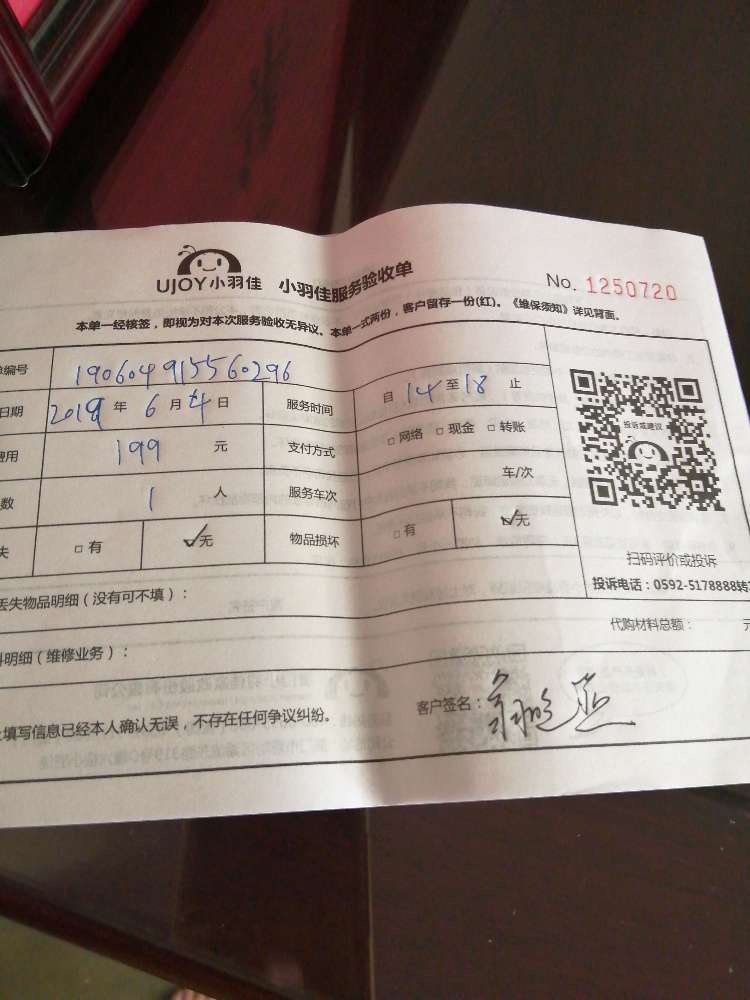 UJOY小羽佳 小羽佳服务验收单 No. 1250720
本单一经核签，即视为对本次服务验收无异议。本单一式两份，客户留存一份(红)。《维保须知》详见背面。
编号 190604915560296
日期 2019 年 6 月 4 日 服务时间 自 14 至 18 止
费用 199 元 支付方式 □ 网络 □ 现金 □ 转账
数 1 人 服务车次 车/次
失 □ 有 ✓无 物品损坏 □ 有 ✓无
投诉或建议
扫码评价或投诉
投诉电话：0592-5178888转
丢失物品明细（没有可不填）：
代购材料总额： 元
料明细（维修业务）：
填写信息已经本人确认无误，不存在任何争议纠纷。 客户签名：